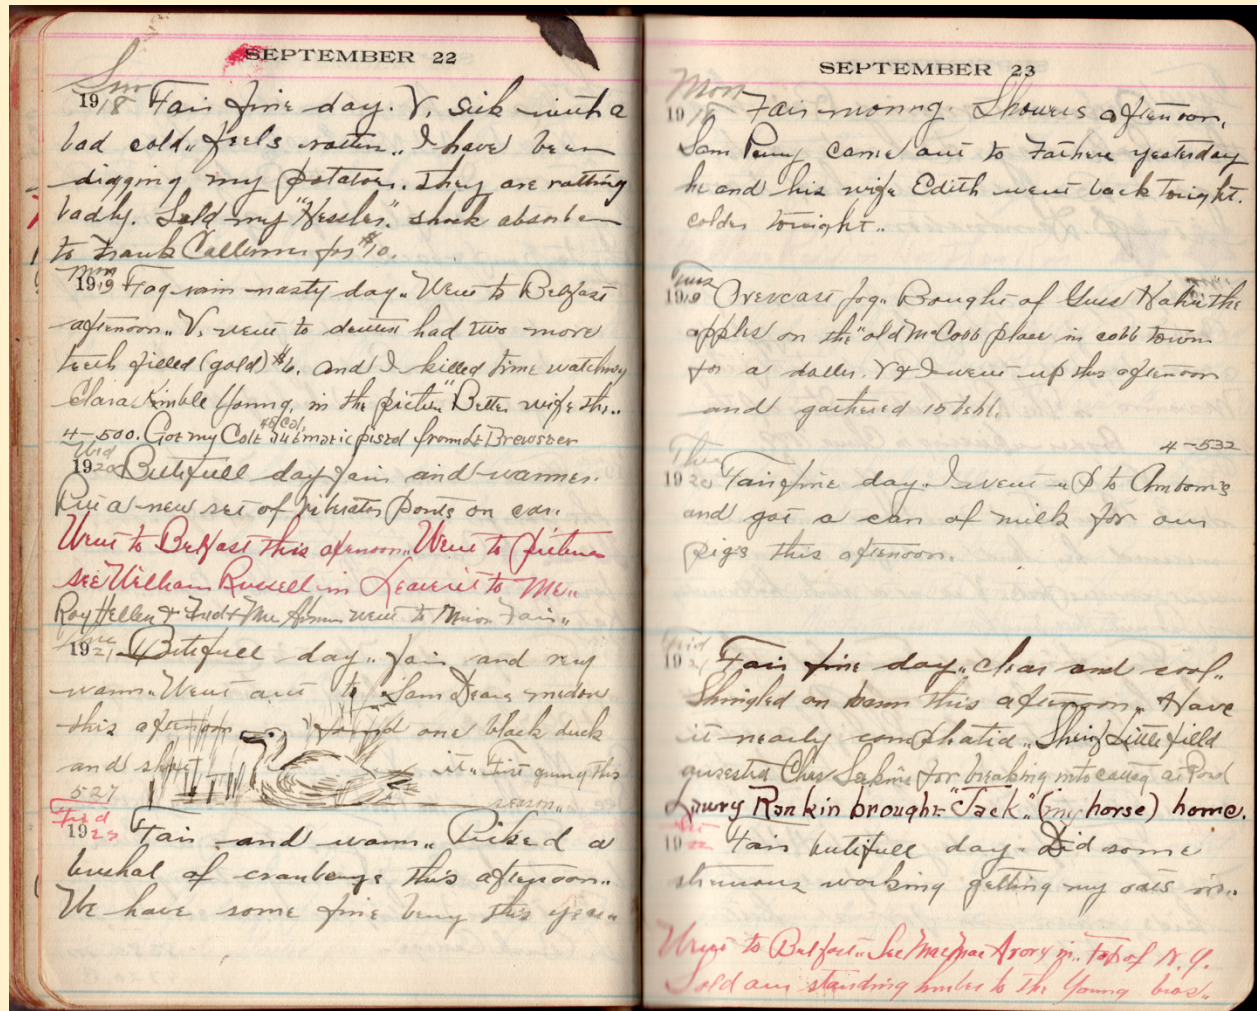 SEPTEMBER 22
Sun
1918 Fair fine day. V. sick with a
bad cold,, feels rotten,, I have been
digging my potatoes. They are rotting
badly. Sold my "Hessler" shock absorber
to Frank for $10.
Mon
1919 Fog rain nasty day,, Went to Belfast
afternoon,, V. went to dentist had two more
teeth filled (gold) $6. and I killed time watching
Clara Kimble Young, in the picture "Better wife
4-500. Got my Colt 45 Cal. automatic pistol from Lt Brewster
Wed
1920 Butifull day fair and warmer.
Put a new set of viberator points on car.
Went to Belfast this afenoon,, Went to pictures
see William Russell in Leave it to Me,,
Roy Hellen & Fred & Mrs went to Union Fair,,
1921 Butifull day,, fair and very
warm,, Went out to Sam medow
this afternoon found one black duck
and shot it,, First gunning this
527 season,,
Frid
1922 Fair and warm,, Picked a
bushal of cranberys this afternoon,,
We have some fine berry this year,,
SEPTEMBER 23
Mon
1918 Fair morning. Showers afternoon,
Sam Perry came out to Fathers yesterday
he and his wife Edith went back tonight.
colder tonight,,
Tues
1919 Orevcast fog,, Bought of Guss the
apples on the "old McCobb place in cobb town
for a doller. V & I went up this afternoon
and gathered 10 bbl.
4-532
Thu
1920 Fair fine day. I went up to
and got a can of milk for our
pigs this afternoon.
Frid
1921 Fair fine day,, clear and cool,,
Shingled on barn this afternoon,, Have
it nearly complatid,, Shirif Littlefield
Ches for breaking into at Pond
Lawry Rankin brought "Jack" (my horse) home.
1922 Fair butifull day. Did some
working getting my oats in,,
Went to Belfast,, See in,, Top of N.Y.
Sold our standing to the Young bros,,